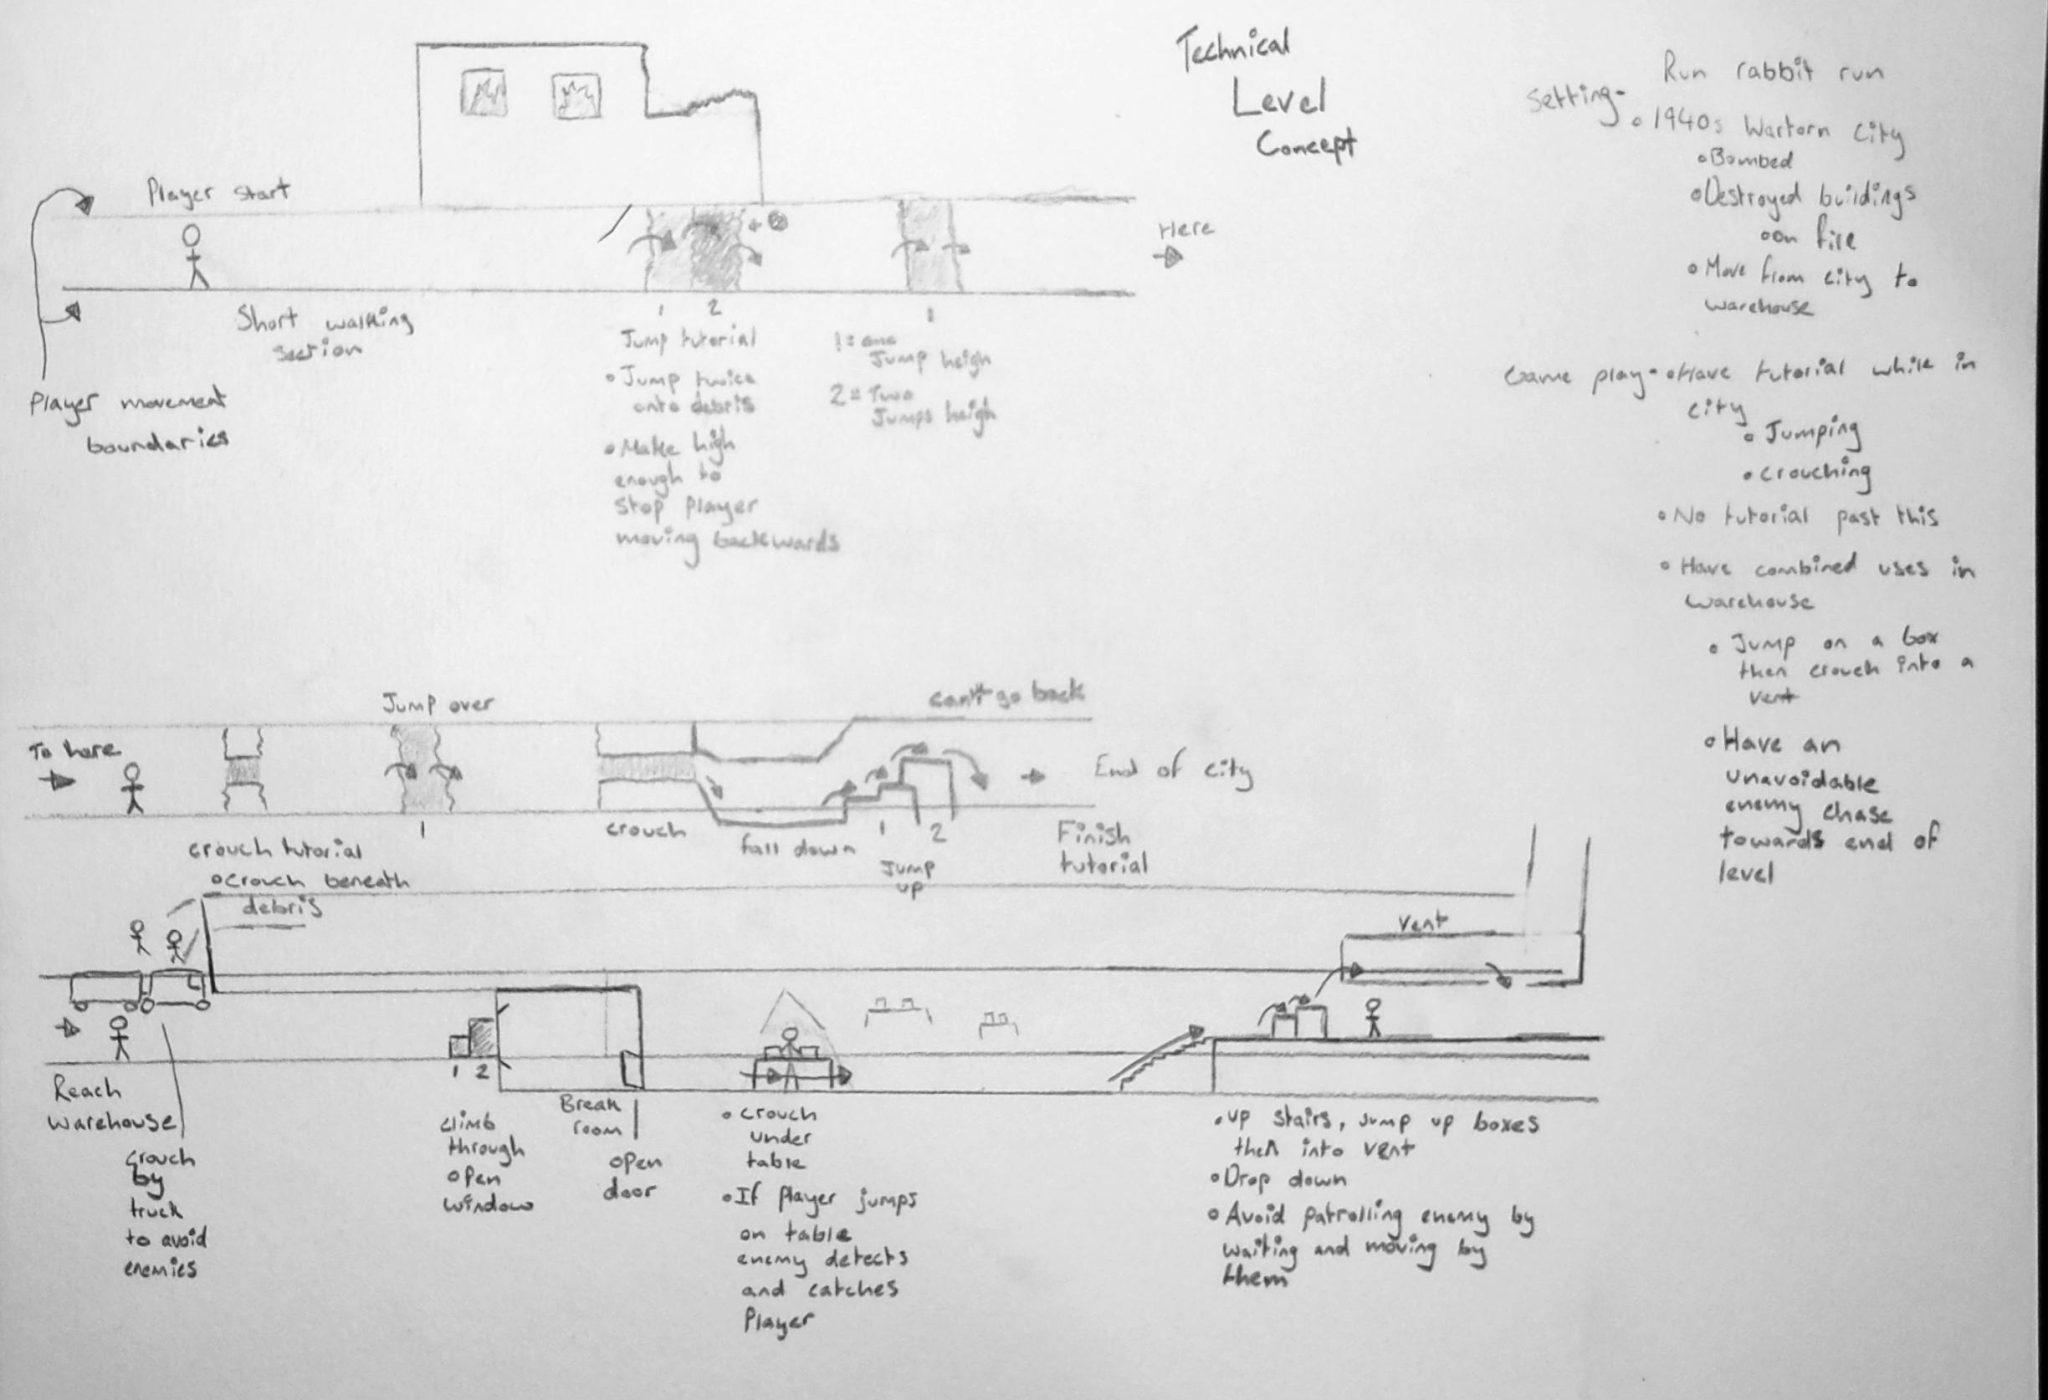 Technical
Level
Concept
Player start
Short walking
section
Player movement
boundaries
1 2
Jump tutorial
• Jump twice
onto debris
• Make high
enough to
stop player
moving backwards
1
1 = one
Jump heigh
2 = Two
Jumps heigh
Here
Run rabbit run
Setting-
• 1940s Wartorn City
• Bombed
• Destroyed buildings
• on fire
• Move from city to
warehouse
Game play- • Have tutorial while in
city
• Jumping
• crouching
• No tutorial past this
• Have combined uses in
warehouse
• Jump on a box
then crouch into a
vent
• Have an
unavoidable
enemy chase
towards end of
level
To here
Jump over
can't go back
End of city
crouch tutorial
• crouch beneath
debris
1
crouch
fall down
1 2
Jump
up
Finish
tutorial
Vent
Reach
warehouse
crouch
by
truck
to avoid
enemies
1 2
climb
through
open
window
Break
room
open
door
• crouch
under
table
• If player jumps
on table
enemy detects
and catches
Player
• up stairs, jump up boxes
then into vent
• Drop down
• Avoid patrolling enemy by
waiting and moving by
them